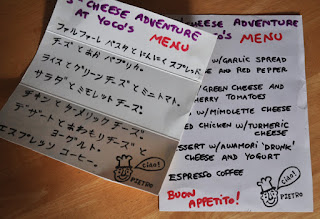 S - CHEESE ADVENTURE
AT YOCO'S
MENU
ファルファーレ パスタ とにんにくスプレッド
チーズとあかパプリカ。
ライスとグリーンチーズとミニトマト。
サラダとミモレットチーズ。
チキンとターメリックチーズ。
デザートとあわもりチーズと
ヨーグルト。
エスプレッソ コーヒー。
ciao!
PIETRO
CHEESE ADVENTURE
YOCO'S MENU
W/GARLIC SPREAD
AND RED PEPPER
GREEN CHEESE AND
CHERRY TOMATOES
W/MIMOLETTE CHEESE
CHICKEN W/TURMERIC
CHEESE
DESSERT W/AWAMORI 'DRUNK'
CHEESE AND YOGURT
ESPRESSO COFFEE
BUON
APPETITO!
ciao!
PIETRO